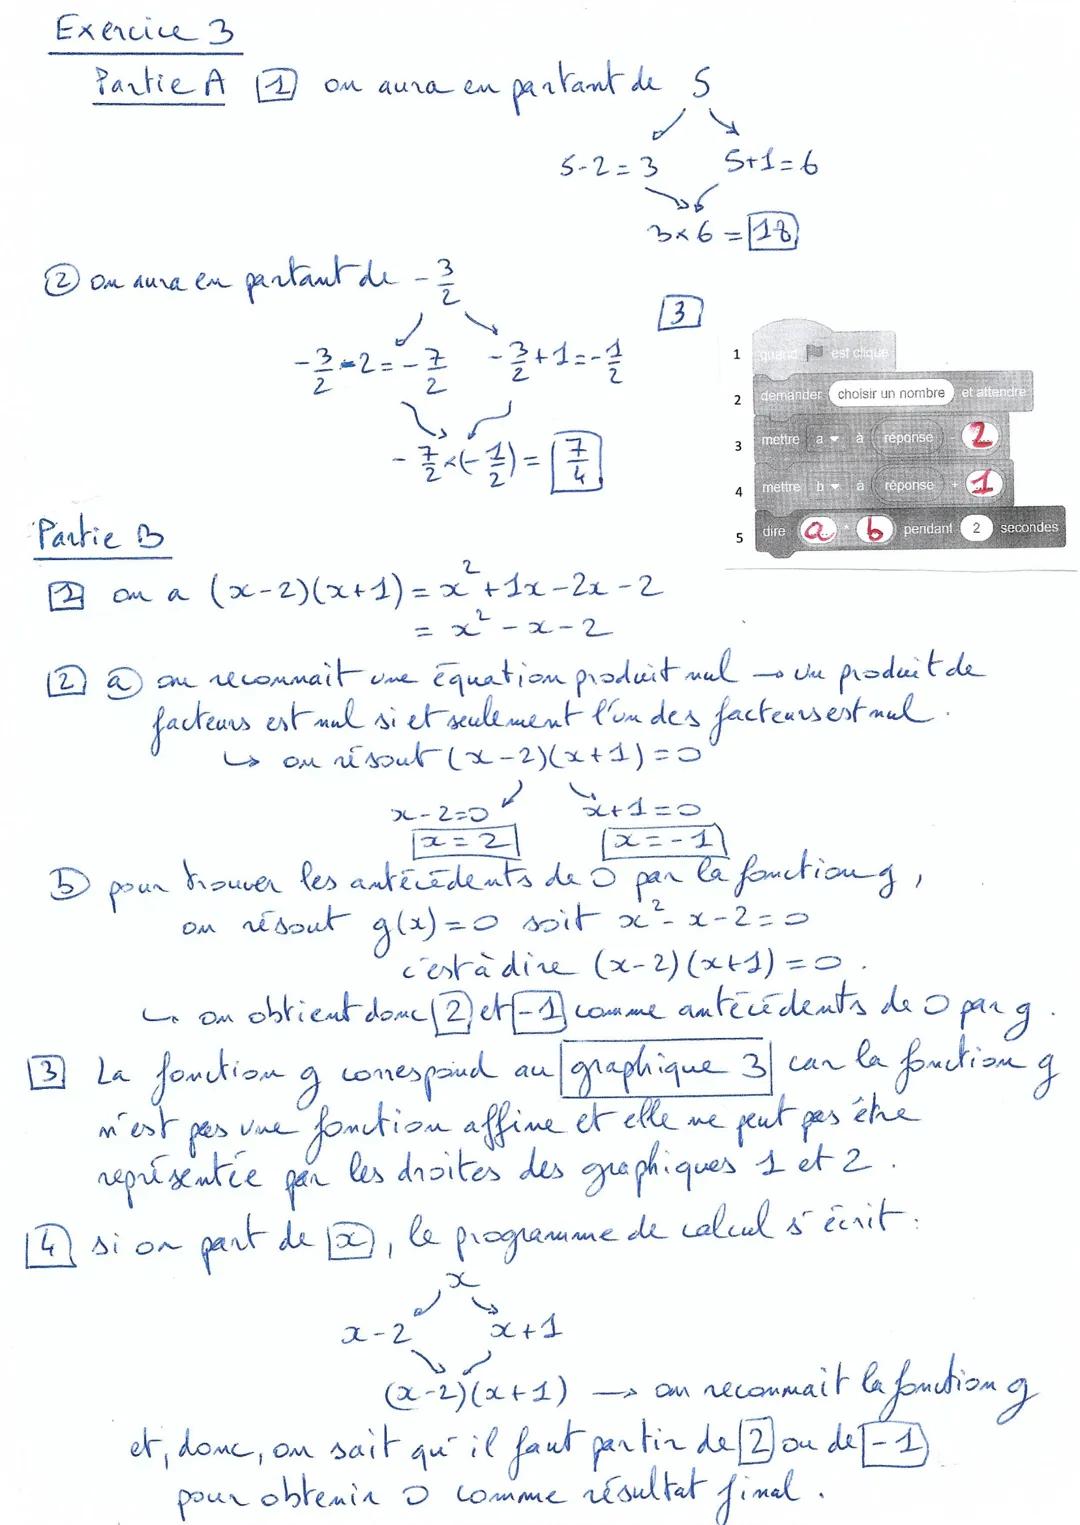 Exercice 3
Partie A 1 on aura en partant de 5
5-2=3 5+1=6
3×6 = 18
2 on aura en partant de -3/2
-3/2-2=-7/2 -3/2+1=-1/2
-7/2×(-1/2)= 7/4
3
1 quand est cliqué
2 demander choisir un nombre et attendre
3 mettre a à réponse - 2
4 mettre b à réponse + 1
5 dire a * b pendant 2 secondes
Partie B
1 on a (x-2)(x+1) = x²+1x-2x-2
= x²-x-2
2 a on reconnait une équation produit nul → un produit de
facteurs est nul si et seulement l'un des facteurs est nul.
↳ on résout (x-2)(x+1)=0
x-2=0 x+1=0
x=2 x=-1
b pour trouver les antécédents de 0 par la fonction g,
on résout g(x)=0 soit x²-x-2=0
c'est à dire (x-2)(x+1)=0.
↳ on obtient donc 2 et -1 comme antécédents de 0 par g.
3 La fonction g correspond au graphique 3 car la fonction g
n'est pas une fonction affine et elle ne peut pas être
représentée par les droites des graphiques 1 et 2.
4 si on part de x, le programme de calcul s'écrit:
x
x-2 x+1
(x-2)(x+1) → on reconnait la fonction g
et, donc, on sait qu'il faut partir de 2 ou de -1
pour obtenir 0 comme résultat final.